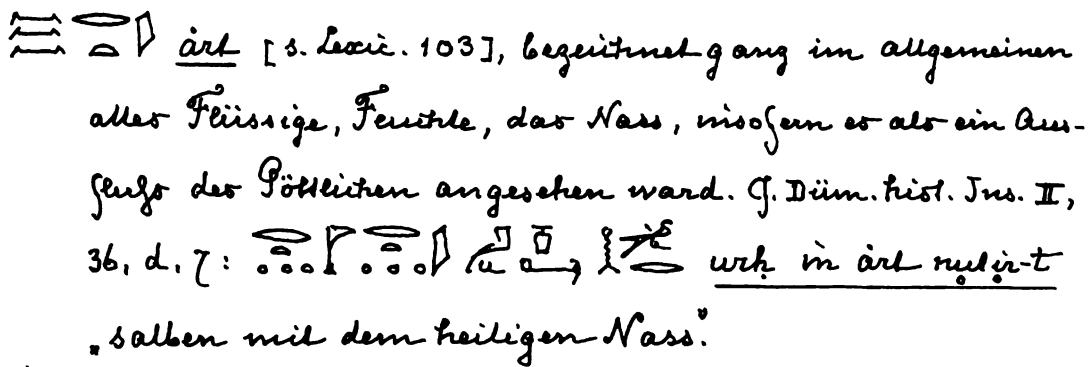 ȧrt [s. Lexic. 103], bezeichnet ganz im allgemeinen
alles Flüssige, Feuchte, das Nass, insofern es als ein Aus-
fluss des Göttlichen angesehen ward. Cf. Düm. hist. Ins. II,
36, d, 7: urḥ in ȧrt
„salben mit dem heiligen Nass".